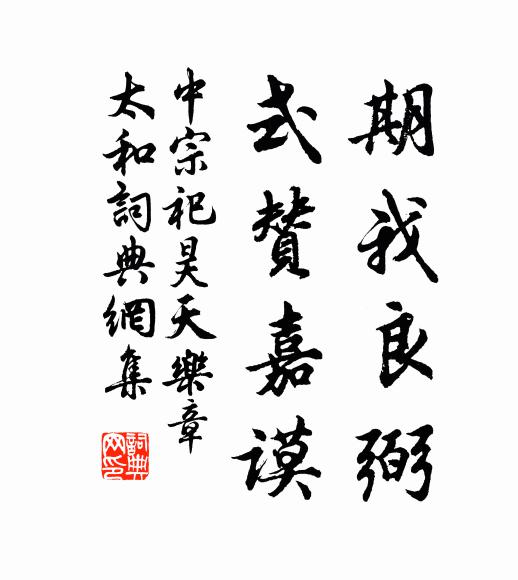 期我良弼
式贊嘉謨
中宗祀昊天樂章
太和詞典網集
詞典網印